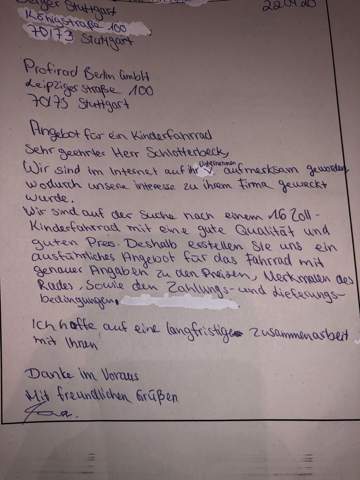 Stuttgart
22.04.20
Königstraße 100
70173 Stuttgart
Profirad Berlin GmbH
Leipziger Straße 100
70173 Stuttgart
Angebot für ein Kinderfahrrad
Sehr geehrter Herr Schlotterbeck,
Wir sind im Internet auf ihr Unternehmen aufmerksam geworden,
wodurch unsere interesse zu ihrem Firma geweckt
wurde.
Wir sind auf der Suche nach einem 16 Zoll-
Kinderfahrrad mit eine gute Qualität und
guten Preis. Deshalb erstellen Sie uns ein
ausführliches Angebot für das Fahrrad mit
genauer Angaben zu den Preisen, Merkmalen des
Rades, Sowie den Zahlungs- und Lieferungs-
bedingungen.
Ich hoffe auf eine langfristige Zusammenarbeit
mit Ihnen
Danke im Voraus
Mit freundlichen Grüßen